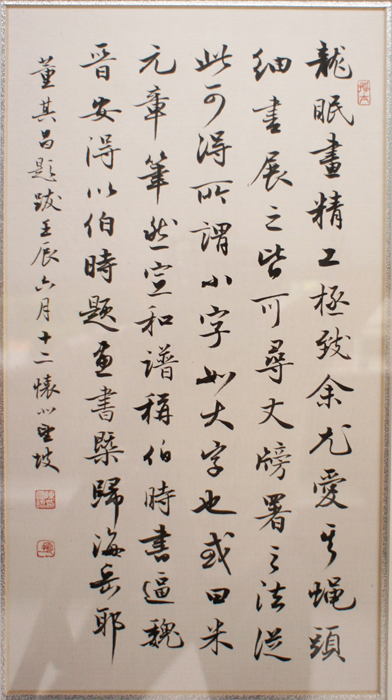 龍眠畫精工極致余尤愛其蝇頭
细書展之皆可尋丈牓署之法從
此可得所謂小字如大字也或曰米
元章筆然宣和譜稱伯時書逼魏
晉安得以伯時題画書槩歸海岳耶
董其昌題跋壬辰六月十二懷坡